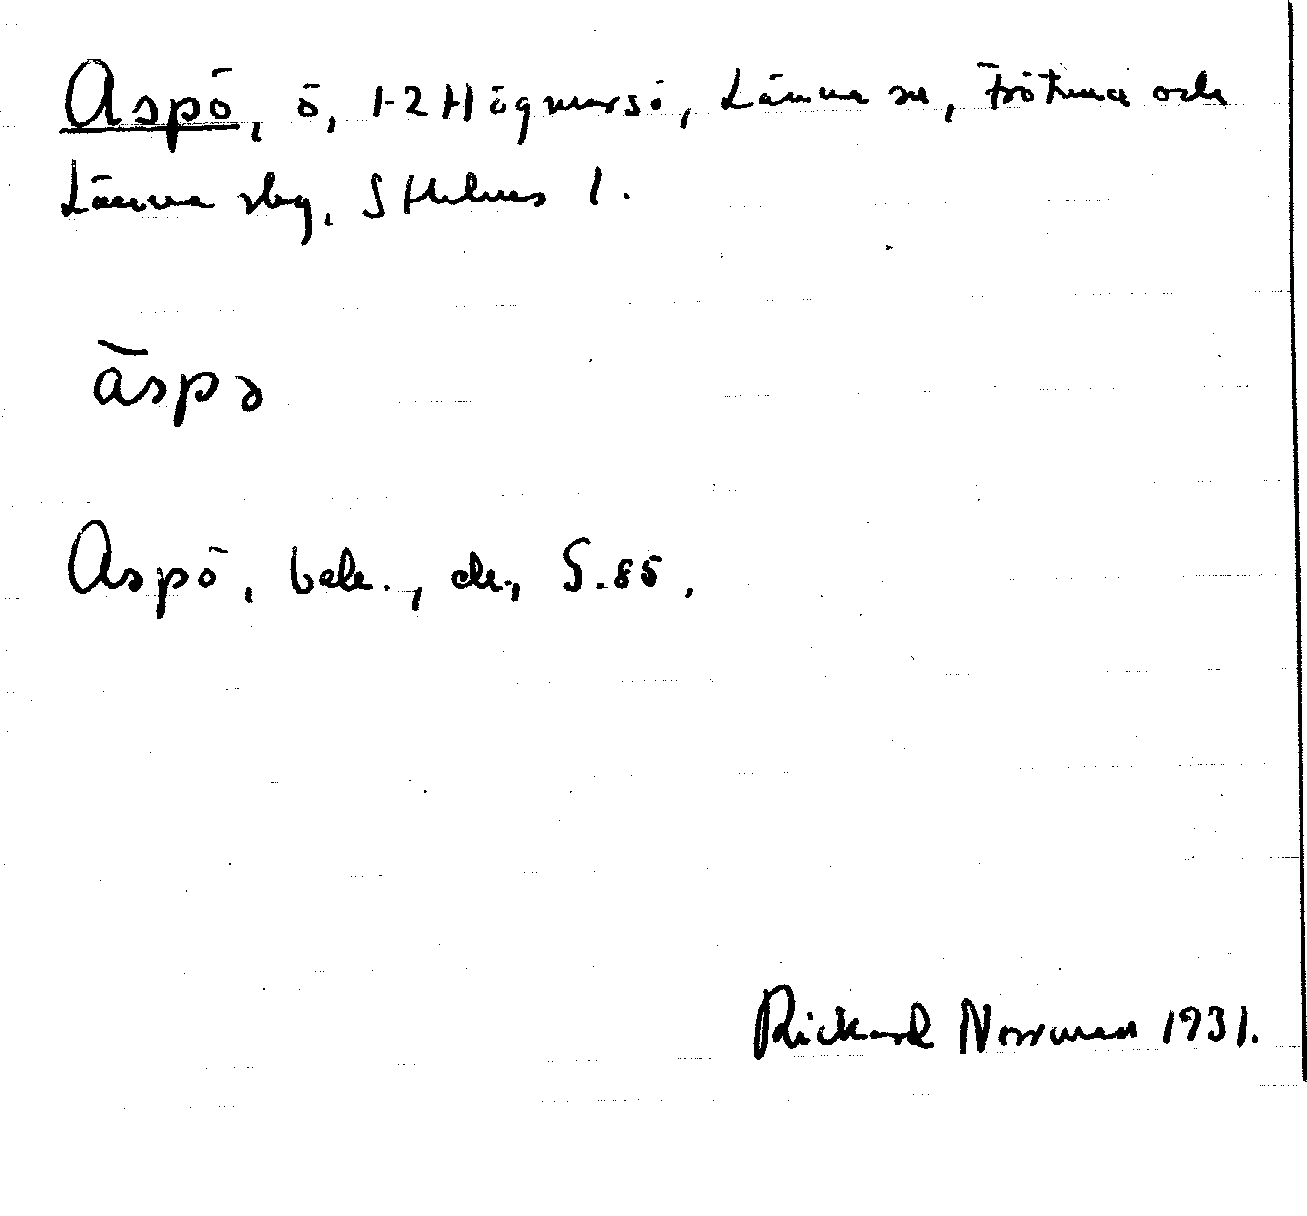 Aspö, ö, 1-2 Högmarsö, Länna sn, Frötuna och
Länna skg, Sthlms l.
āspə
Aspö, bebe., de., S. 85.
Rickard Norrman 1931.